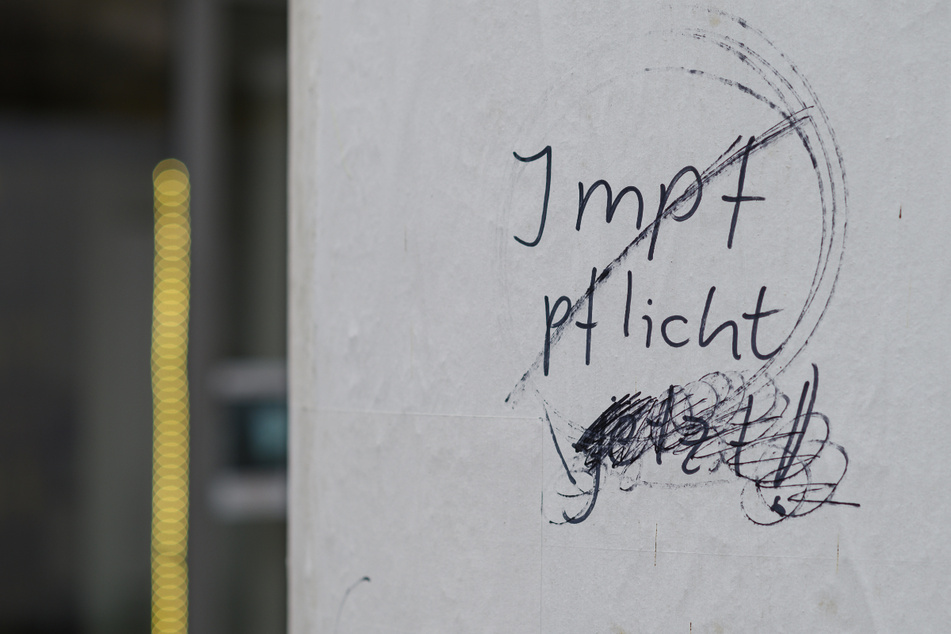 Impf
pflicht
jetzt!